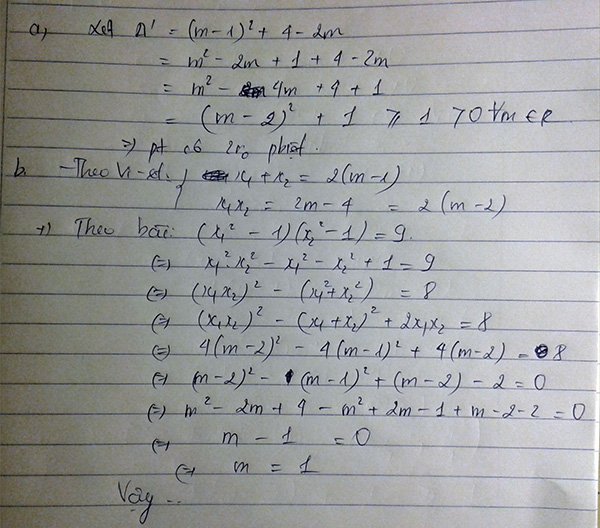 a, Xét Δ' = (m-1)² + 4 - 2m
= m² - 2m + 1 + 4 - 2m
= m² - 4m + 4 + 1
= (m-2)² + 1 ⩾ 1 > 0 ∀m ∈ R
=> pt có 2 no pbiệt.
b. - Theo Vi-ét: } x₁ + x₂ = 2(m-1)
x₁x₂ = 2m - 4 = 2(m-2)
+) Theo bài: (x₁² - 1)(x₂² - 1) = 9.
(=) x₁².x₂² - x₁² - x₂² + 1 = 9
(=) (x₁x₂)² - (x₁² + x₂²) = 8
(=) (x₁x₂)² - (x₁ + x₂)² + 2x₁x₂ = 8
(=) 4(m-2)² - 4(m-1)² + 4(m-2) = 8
(=) (m-2)² - (m-1)² + (m-2) - 2 = 0
(=) m² - 2m + 4 - m² + 2m - 1 + m - 2 - 2 = 0
(=) m - 1 = 0
(=) m = 1
Vậy ...